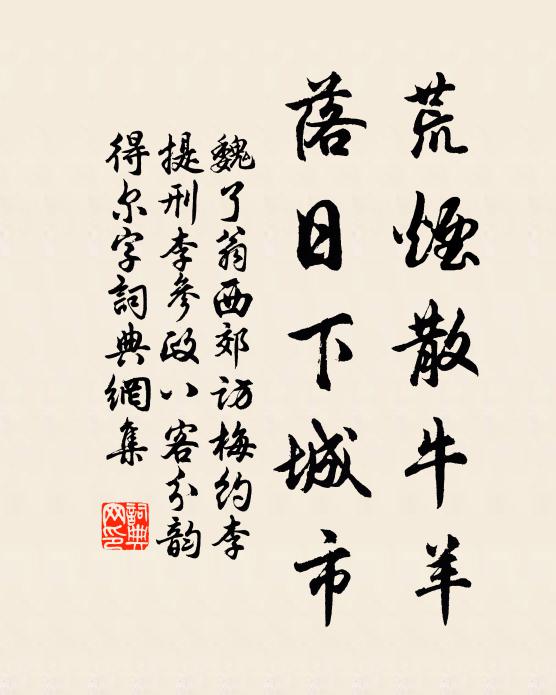 荒煙散牛羊
落日下城市
魏了翁西郊访梅约李
提刑李參政八客分韵
得尔字詞典網集
詞典网印